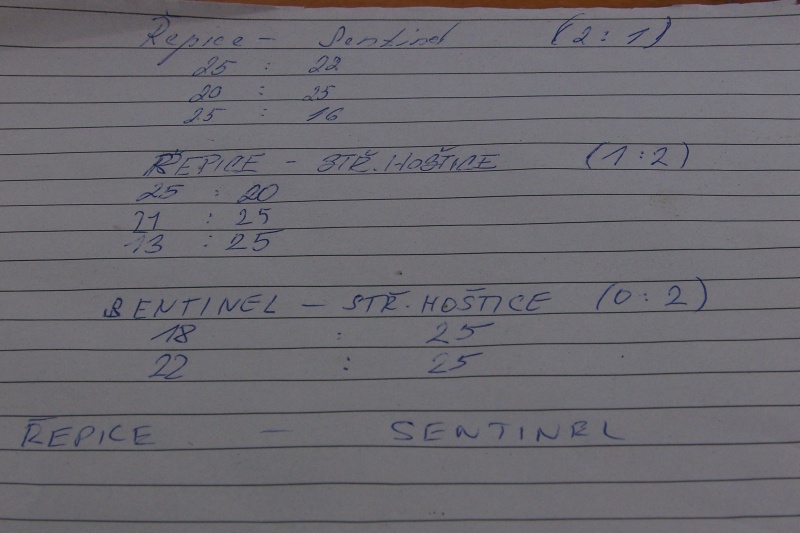 Řepice - Sentinel (2:1)
25 : 22
20 : 25
25 : 16
ŘEPICE - STŘ. HOŠTICE (1:2)
25 : 20
21 : 25
13 : 25
SENTINEL - STŘ. HOŠTICE (0:2)
18 : 25
22 : 25
ŘEPICE - SENTINEL